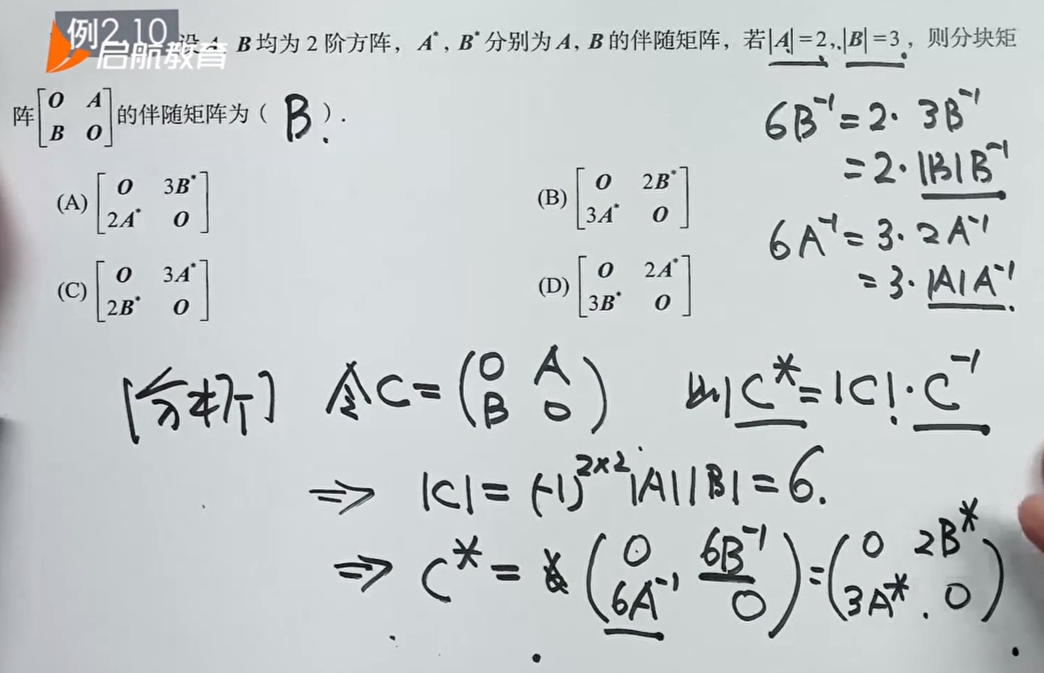 例2.10
启航教育
设 A, B 均为 2 阶方阵，A*, B* 分别为 A, B 的伴随矩阵，若|A|=2,|B|=3，则分块矩
阵[O A; B O]的伴随矩阵为（ B ）.
(A) [O 3B*; 2A* O]
(B) [O 2B*; 3A* O]
(C) [O 3A*; 2B* O]
(D) [O 2A*; 3B* O]
6B⁻¹=2·3B⁻¹
=2·|B|B⁻¹
6A⁻¹=3·2A⁻¹
=3·|A|A⁻¹
[分析] 令C=(0 A; B 0) 则 C*=|C|·C⁻¹
⇒ |C|=(-1)^{2×2}|A||B|=6.
⇒ C*=(0 6B⁻¹; 6A⁻¹ 0)=(0 2B*; 3A* 0)